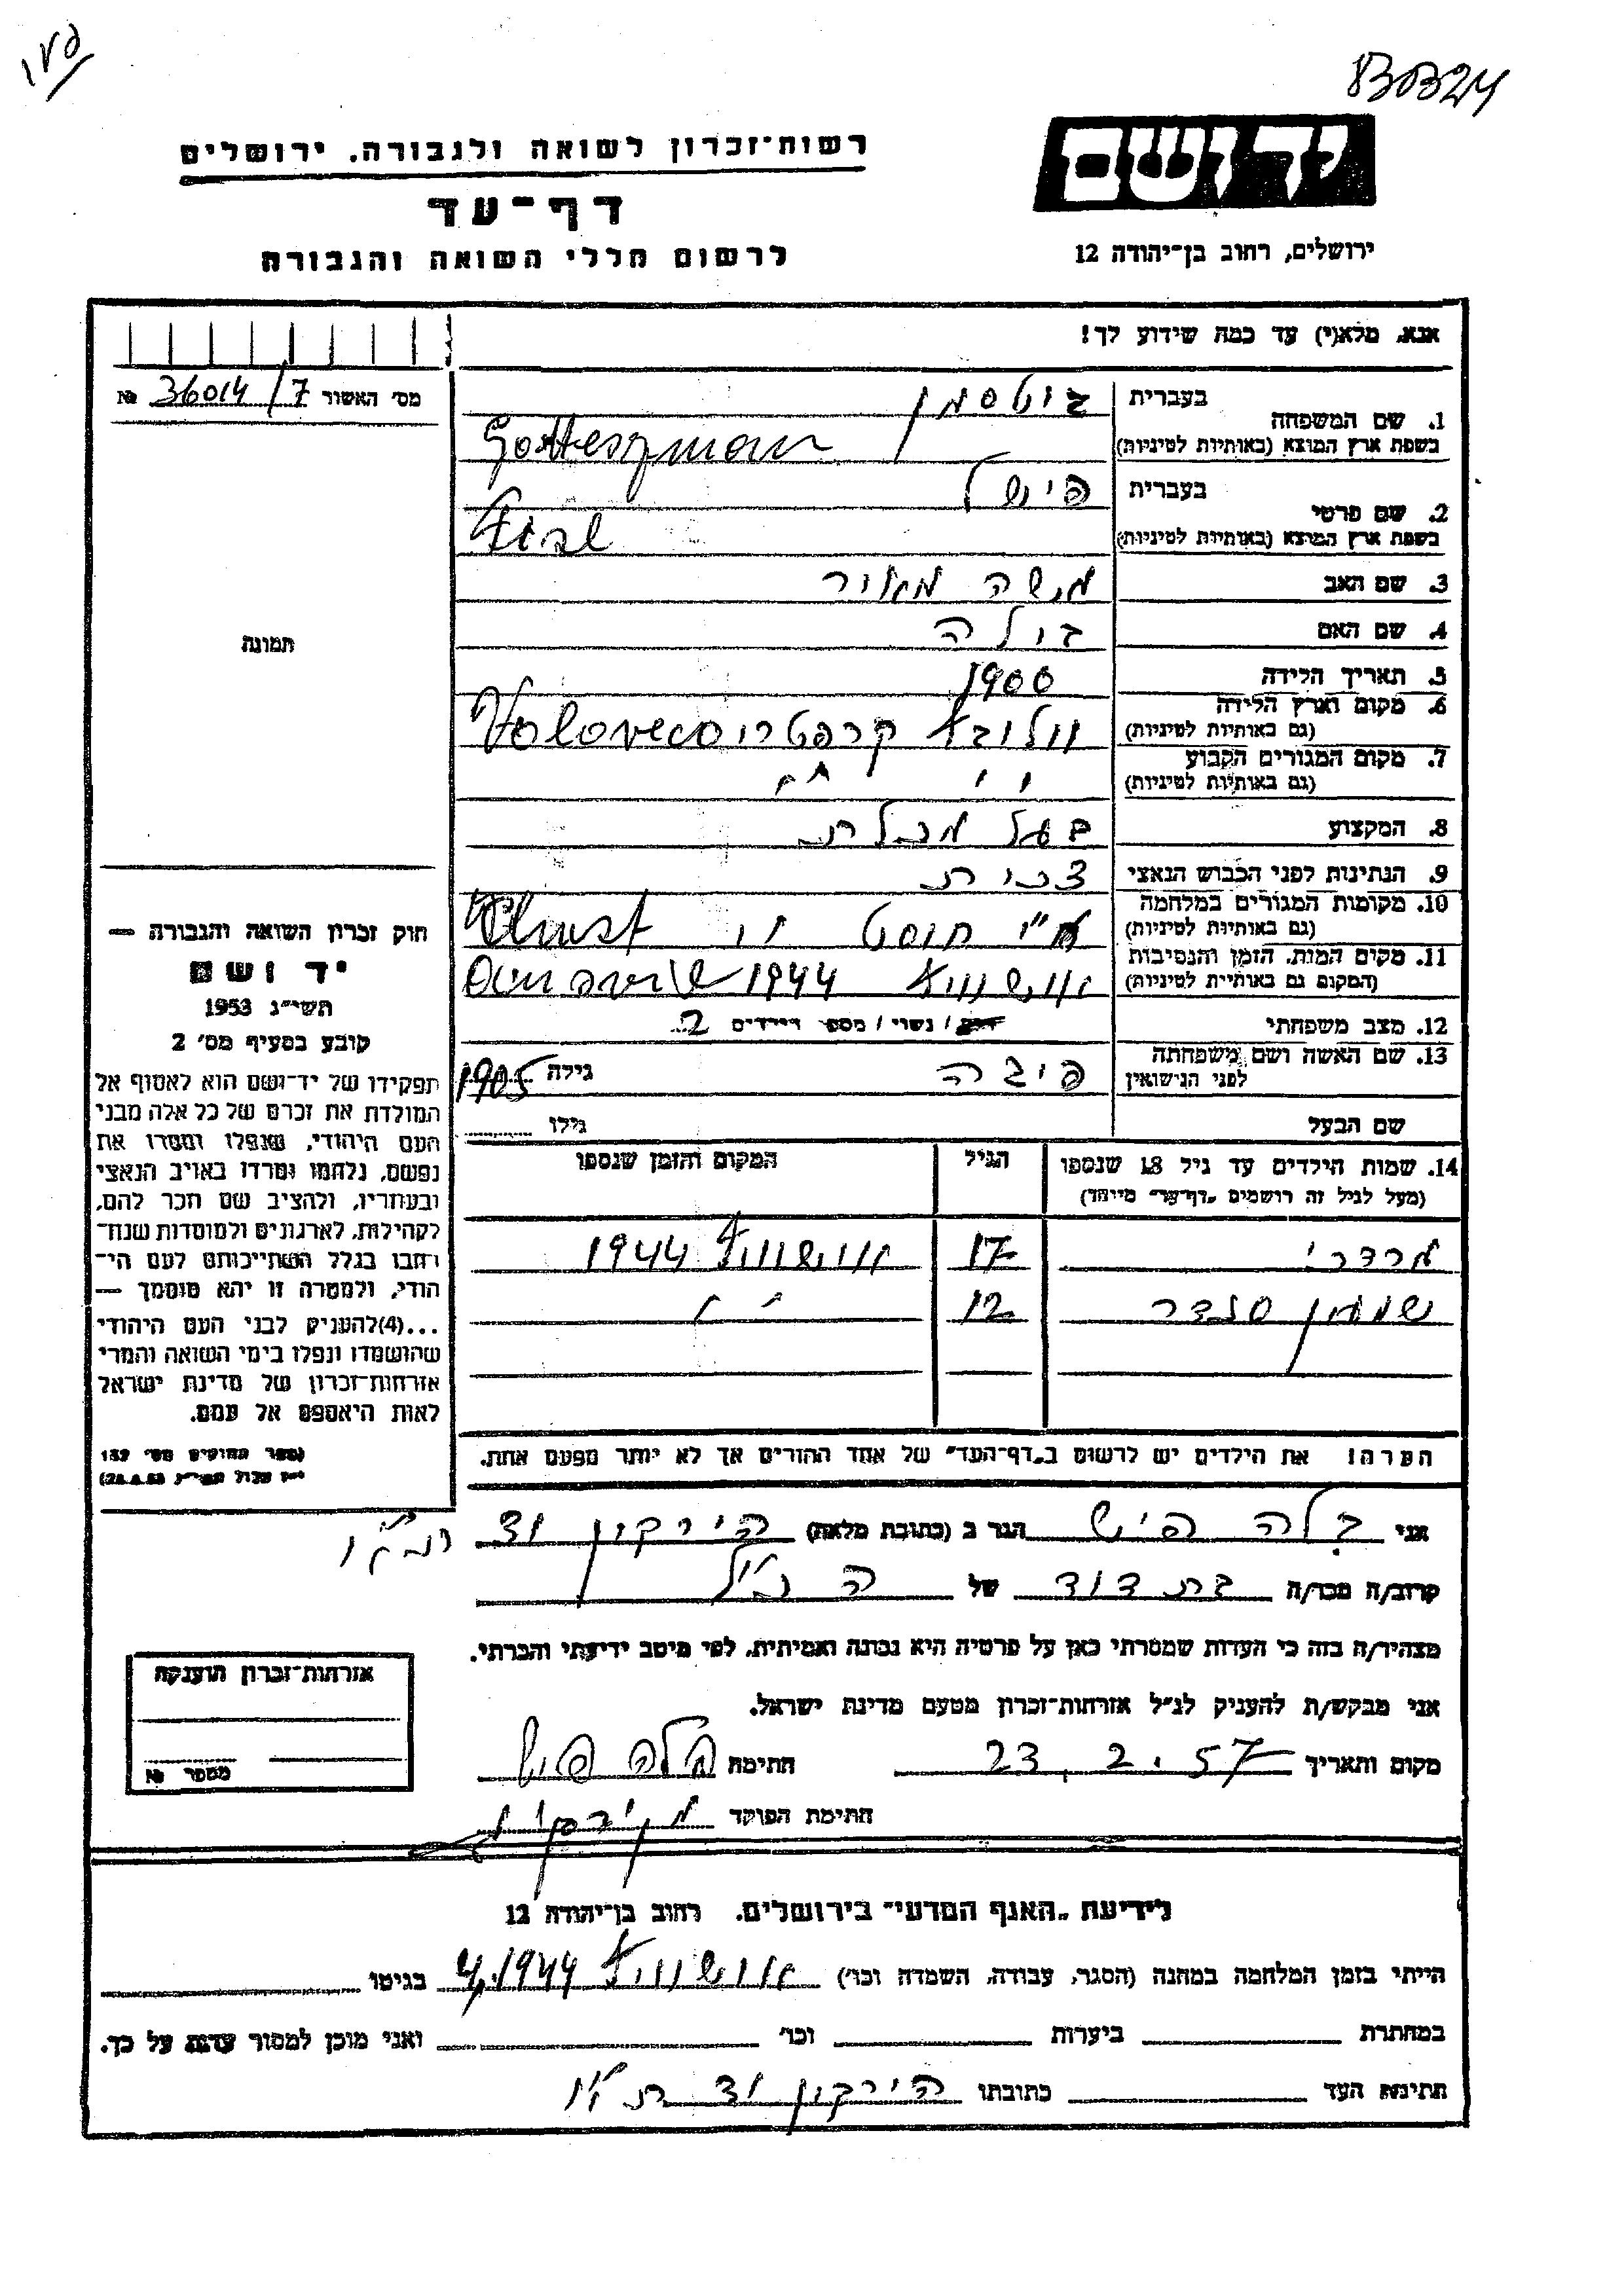 83024
יד ושם
ירושלים, רחוב בן־יהודה 12
רשות־זכרון לשואה ולגבורה. ירושלים
דף־עד
לרשום חללי השואה והגבורה
אנא, מלא(י) עד כמה שידוע לך!
מס׳ האשור 36014/7 №
1. שם המשפחה
בעברית גוטסמן
בשפת ארץ המוצא (באותיות לטיניות) Gotteszman
2. שם פרטי
בעברית פישל
בשפת ארץ המוצא (באותיות לטיניות) Fisl
3. שם האב משה מאיר
4. שם האם
5. תאריך הלידה 1900
6. מקום וארץ הלידה
(גם באותיות לטיניות) קרפטרוס Volovec
7. מקום המגורים הקבוע
(גם באותיות לטיניות)
8. המקצוע בעל מכלת
9. הנתינות לפני הכבוש הנאצי צכית
10. מקומות המגורים במלחמה
(גם באותיות לטיניות) חוסט
11. מקום המות, הזמן והנסיבות
(המקום גם באותיות לטיניות) אושוויץ 1944
12. מצב משפחתי רווק / נשוי / מספר הילדים 2
13. שם האשה ושם משפחתה
לפני הנישואין פיגה גילה 1905
שם הבעל גילו
14. שמות הילדים עד גיל 18 שנספו הגיל המקום והזמן שנספו
(מעל לגיל זה רושמים „דף־עד״ מיוחד)
מרדכי 17 אושוויץ 1944
שמעון סנדר 12 " "
הערה! את הילדים יש לרשום ב„דף־העד״ של אחד ההורים אך לא יותר מפעם אחת.
תמונה
חוק זכרון השואה והגבורה —
יד ושם
תשי״ג 1953
קובע בסעיף מס׳ 2
תפקידו של יד־ושם הוא לאסוף אל
המולדת את זכרם של כל אלה מבני
העם היהודי, שנפלו ומסרו את
נפשם, נלחמו ומרדו באויב הנאצי
ובעוזריו, ולהציב שם וזכר להם,
לקהילות, לארגונים ולמוסדות שנח־
רבו בגלל השתייכותם לעם היה־
הודי, ולמטרה זו יהא מוסמך —
...(4) להעניק לבני העם היהודי
שהושמדו ונפלו בימי השואה והמרי
אזרחות־זכרון של מדינת ישראל
לאות היאספם אל עמם.
(ספר החוקים מס׳ 132
אני בלה פיש הגר ב (כתובת מלאה) הירקון
קרוב/ה מכר/ה בת דוד של הנ״ל
מצהיר/ה בזה כי העדות שמסרתי כאן על פרטיה היא נכונה ואמיתית, לפי מיטב ידיעתי והכרתי.
אני מבקש/ת להעניק לנ״ל אזרחות־זכרון מטעם מדינת ישראל.
מקום ותאריך 23.2.57 חתימה בלה פיש
חתימת הפוקד
אזרחות־זכרון הוענקה
מספר №
לידיעת „האגף המדעי״ בירושלים. רחוב בן־יהודה 12
הייתי בזמן המלחמה במחנה (הסגר, עבודה, השמדה וכו׳) אושוויץ 4.1944 בגיטו
במחתרת ביערות וכו׳ ואני מוכן למסור עדות על כך.
חתימת העד כתובתו הירקון